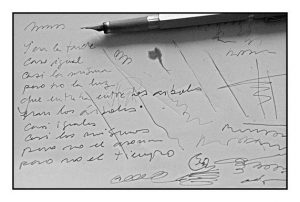 Para la tarde
Casi igual
Casi la misma
pero no la luz
que entra entre los árboles
eran los árboles.
Casi iguales
Casi los mismos
pero no el aroma
pero no el tiempo